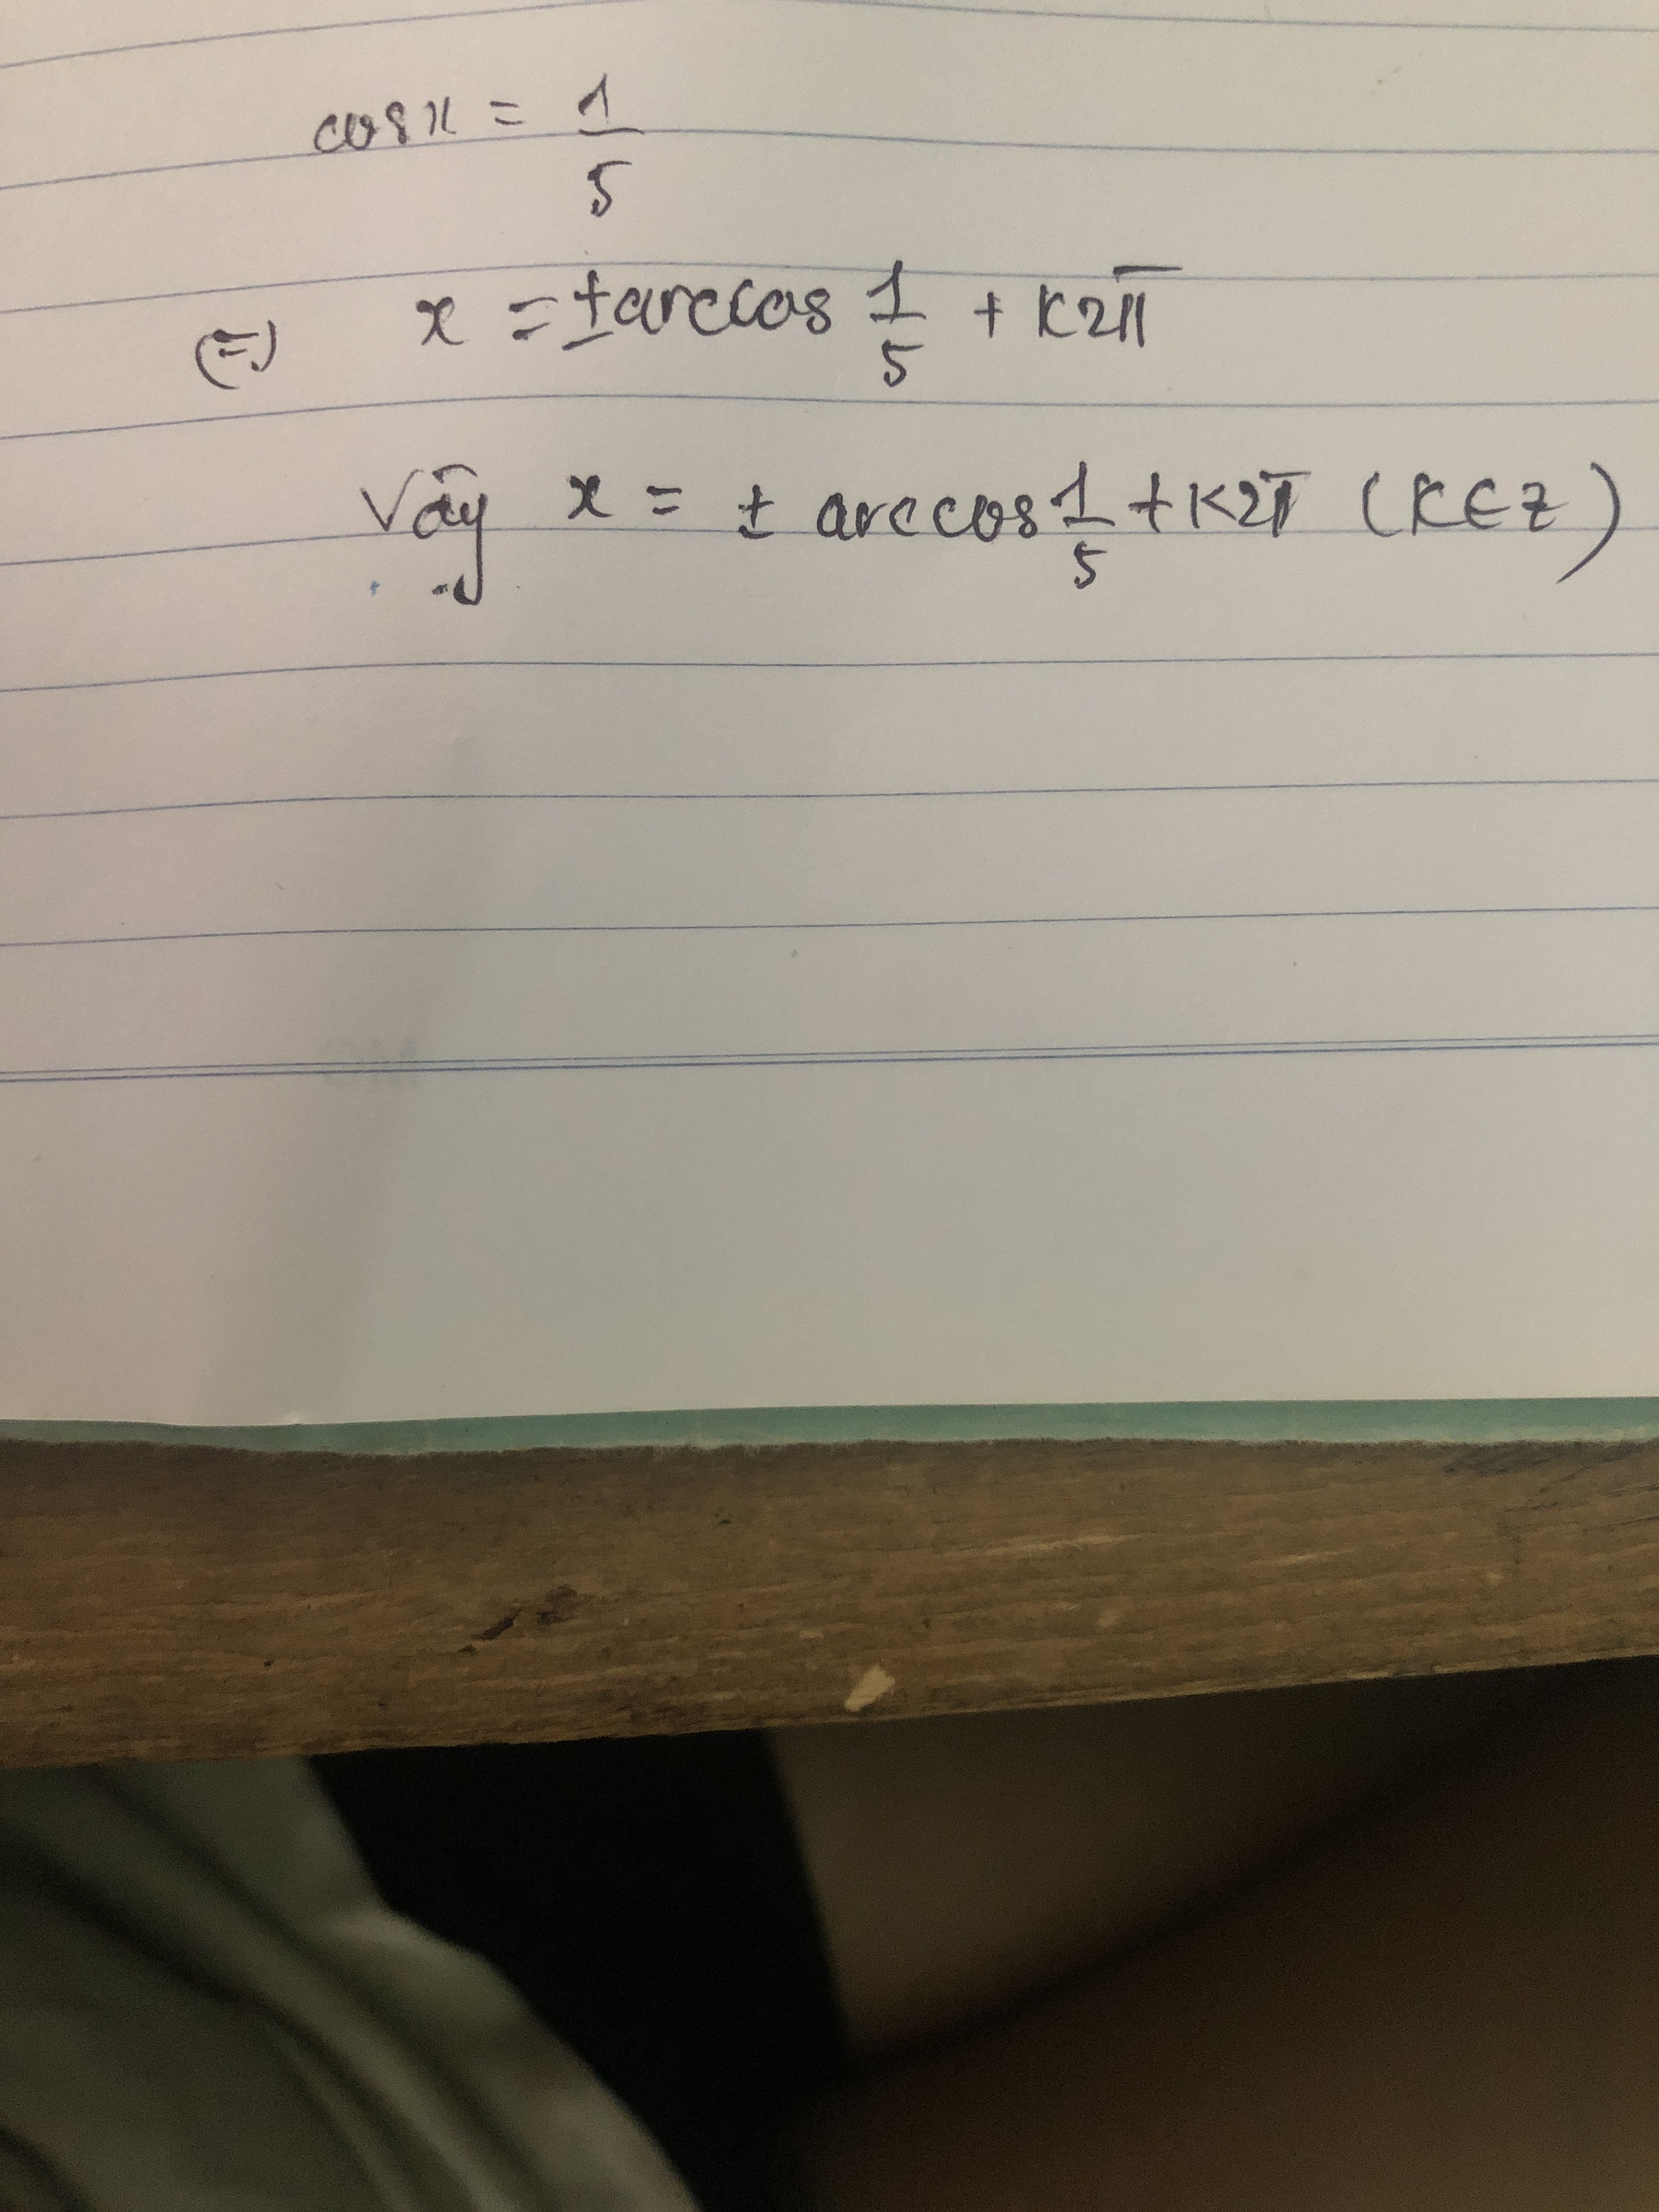 cos x = 1/5
(=) x = ± arccos 1/5 + K2π
Vậy x = ± arccos 1/5 + K2π (K∈Z)